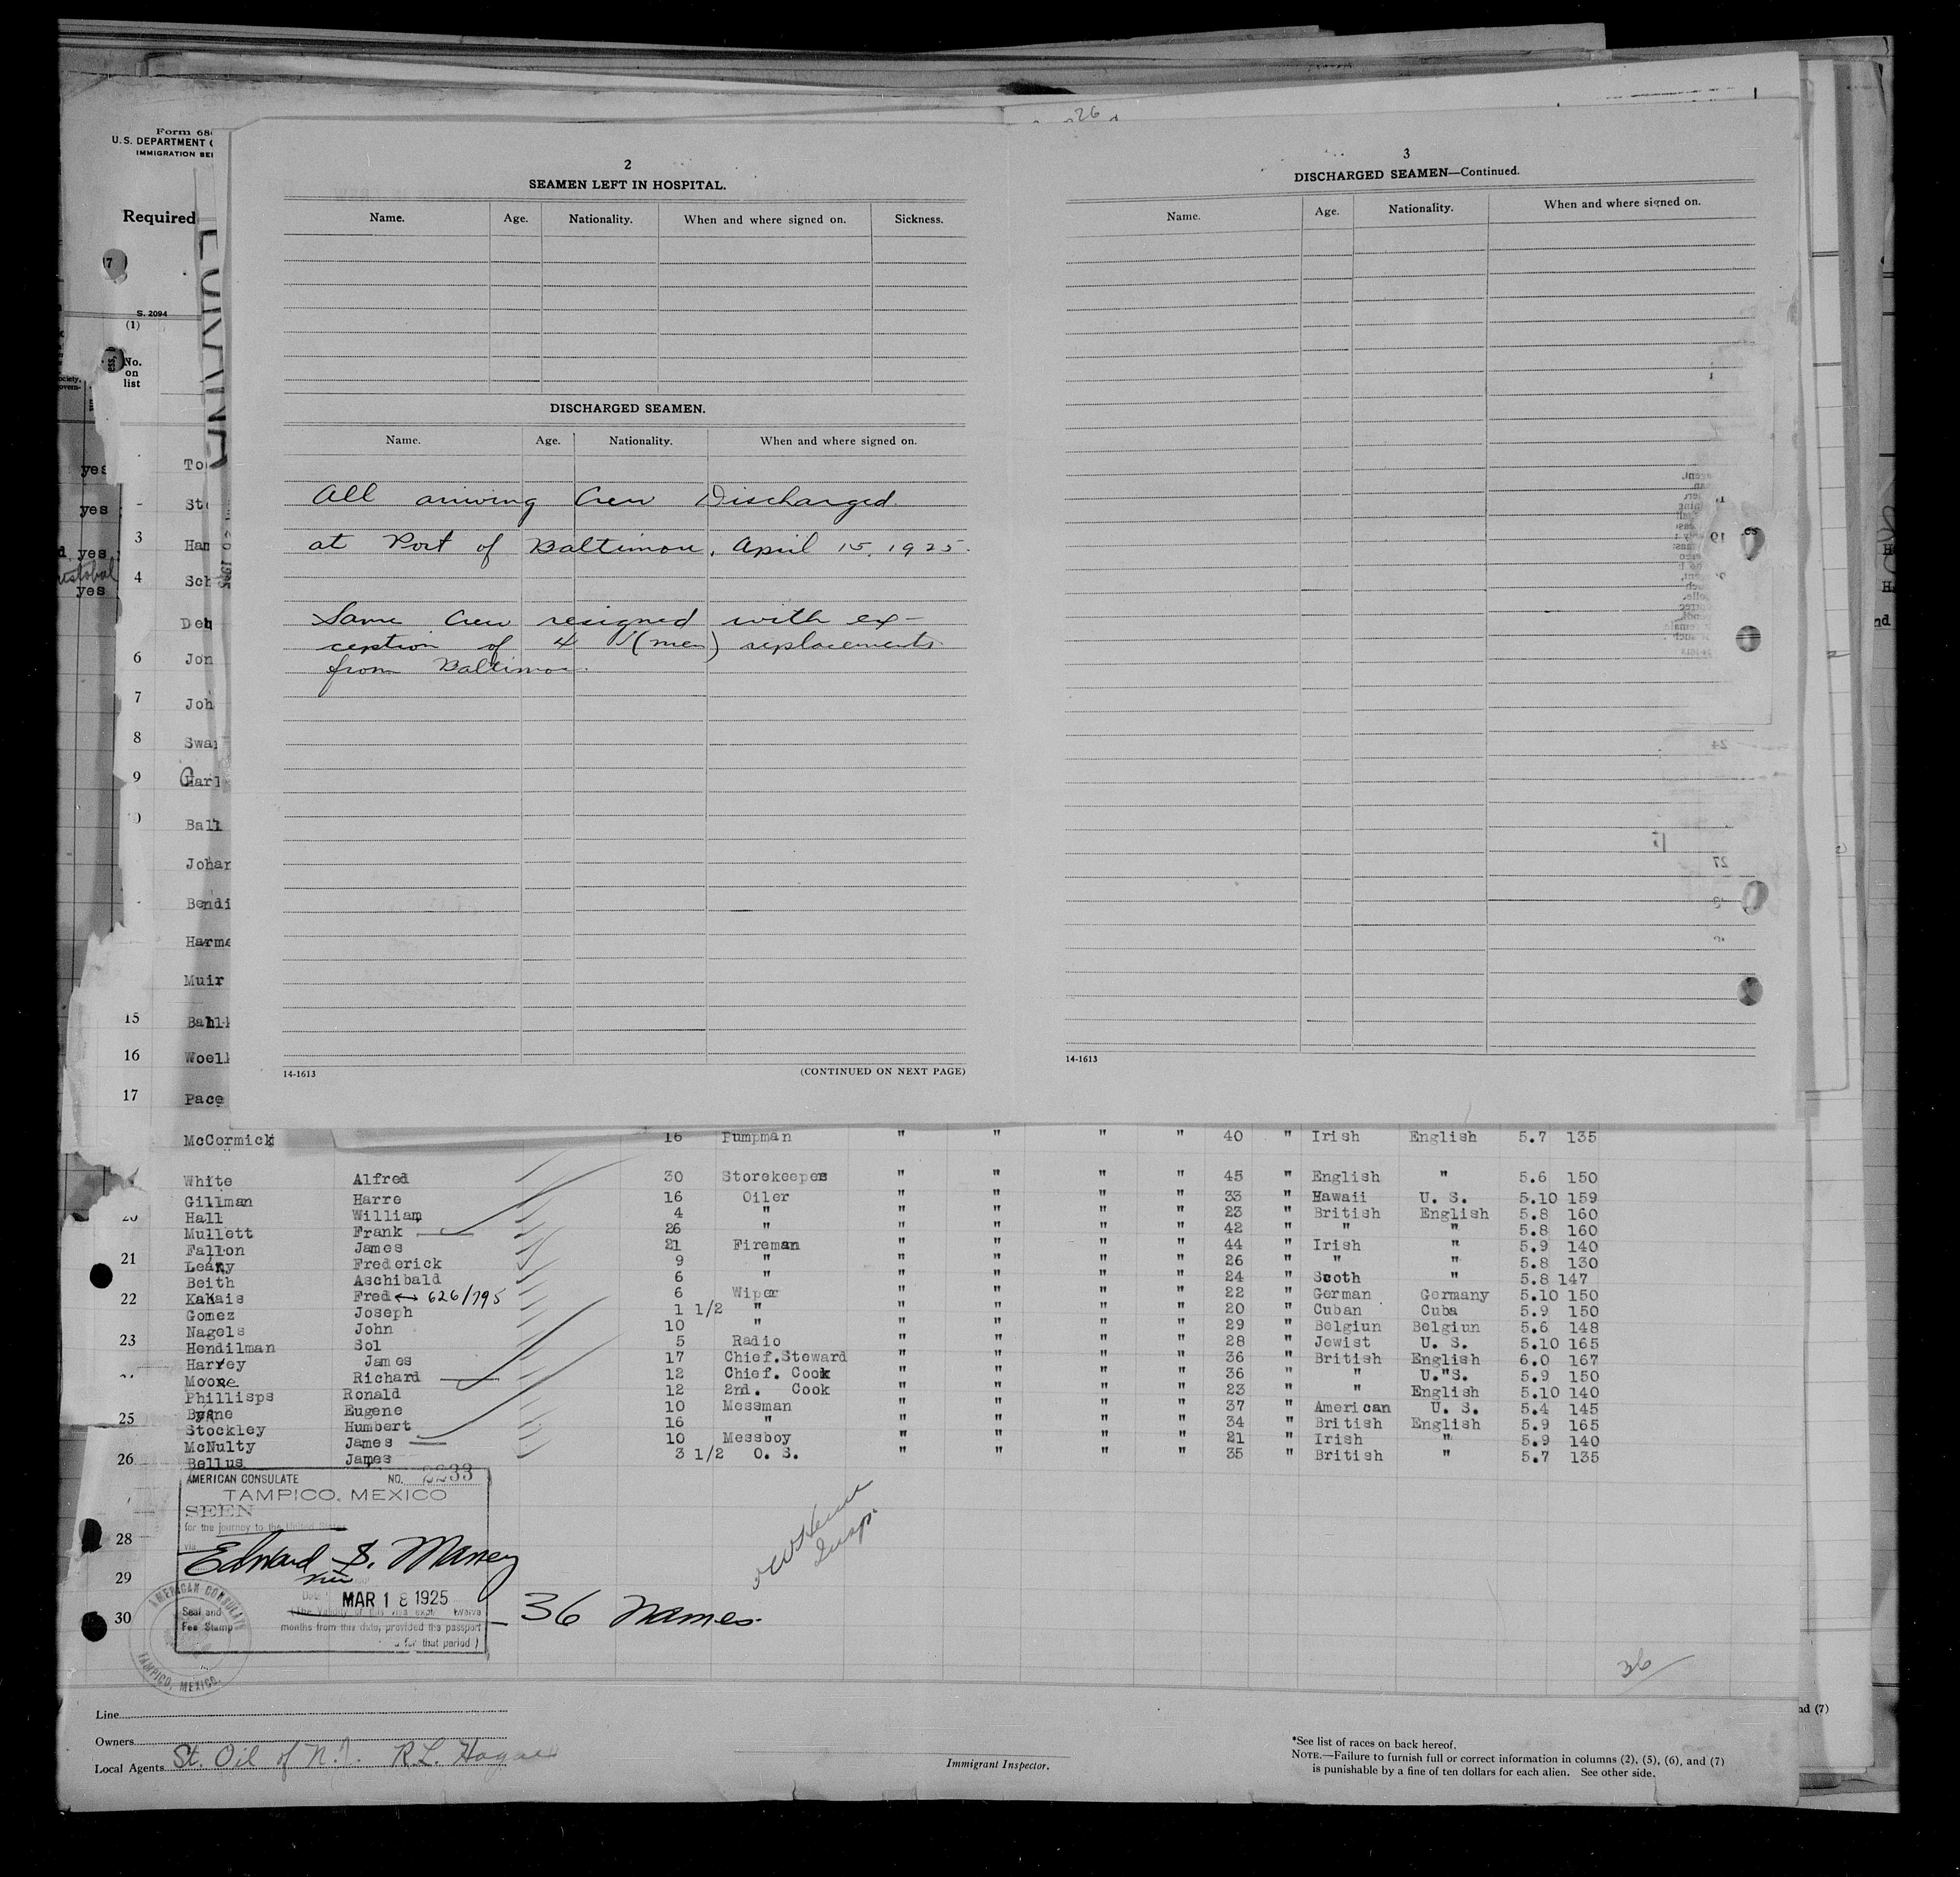 Form 68
U.S. DEPARTMENT
IMMIGRATION
Required
S. 2094
(1)
No.
on
list
26
2
SEAMEN LEFT IN HOSPITAL.
Name. Age. Nationality. When and where signed on. Sickness.
DISCHARGED SEAMEN.
Name. Age. Nationality. When and where signed on.
All arriving Crew Discharged.
at Port of Baltimore, April 15, 1925.
Same Crew resigned with ex-
ception of 4 (men) replacements
from Baltimore.
14-1613 (CONTINUED ON NEXT PAGE)
3
DISCHARGED SEAMEN—Continued.
Name. Age. Nationality. When and where signed on.
14-1613
yes
yes
yes
yes
To
Sto
3 Ham
4 Sch
Deh
6 Jon
7 Joh
8 Swa
9 Carl
Ball
Johan
Bendi
Harme
Muir
15 Bahl
16 Woell
17 Pace
McCormick 16 Pumpman " " " " 40 " Irish English 5.7 135
White Alfred 30 Storekeeper " " " " 45 " English " 5.6 150
Gillman Harre 16 Oiler " " " " 33 " Hawaii U. S. 5.10 159
Hall William 4 " " " " " 23 " British English 5.8 160
Mullett Frank 26 " " " " " 42 " " " 5.8 160
Fallon James 21 Fireman " " " " 44 " Irish " 5.9 140
21 Leary Frederick 9 " " " " " 26 " " " 5.8 130
Beith Aschibald 6 " " " " " 24 " Scoth " 5.8 147
22 Kakais Fred 626/795 6 Wiper " " " " 22 " German Germany 5.10 150
Gomez Joseph 1 1/2 " " " " " 20 " Cuban Cuba 5.9 150
Nagels John 10 " " " " " 29 " Belgiun Belgiun 5.6 148
23 Hendilman Sol 5 Radio " " " " 28 " Jewist U. S. 5.10 165
Harvey James 17 Chief.Steward " " " " 36 " British English 6.0 167
Moore Richard 12 Chief. Cook " " " " 36 " " U."S. 5.9 150
Phillisps Ronald 12 2nd. Cook " " " " 23 " " English 5.10 140
25 Byrne Eugene 10 Messman " " " " 37 " American U. S. 5.4 145
Stockley Humbert 16 " " " " " 34 " British English 5.9 165
McNulty James 10 Messboy " " " " 21 " Irish " 5.9 140
26 Bellus James 3 1/2 O. S. " " " " 35 " British " 5.7 135
AMERICAN CONSULATE NO. 2233
TAMPICO, MEXICO
SEEN
for the journey to the United States
via
Edward S. Maney
MAR 18 1925
months from this date, provided the passport
for that period )
Seal and
Fee Stamp
AMERICAN CONSULATE
TAMPICO, MEXICO.
28
29
30
36 Names.
Insp.
36
Line
Owners
Local Agents St. Oil of N.J. R.L. Hague
Immigrant Inspector.
*See list of races on back hereof.
NOTE.—Failure to furnish full or correct information in columns (2), (5), (6), and (7)
is punishable by a fine of ten dollars for each alien. See other side.
nd (7)